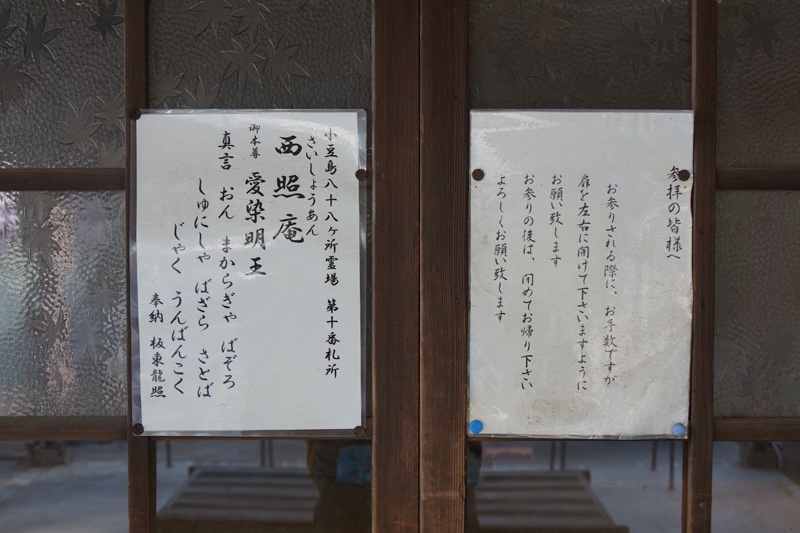 参拝の皆様へ
お参りされる際に、お手数ですが
扉を左右に開けて下さいますように
お願い致します
お参りの後は、閉めてお帰り下さい
よろしくお願い致します
小豆島八十八ヶ所霊場 第十番札所
さいしょうあん
西照庵
御本尊 愛染明王
真言 おん まからぎゃ ばぞろ
しゅにしゃ ばざら さとば
じゃく うんばんこく
奉納 板東龍照